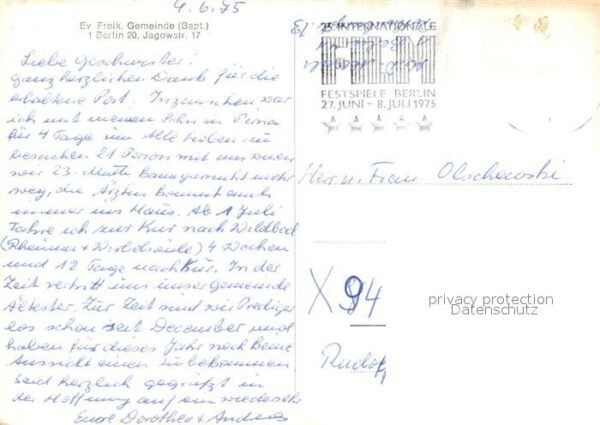 4.6.75
Ev. Freik. Gemeinde (Bapt.)
1 Berlin 20, Jagowstr. 17
Liebe Geschwister!
ganz herzlichen Dank für die
erhaltene Post. Inzwischen war
ich mit meinem Sohn in Pirna
für 4 Tage um alle Lieben zu
besuchen. 21 Person mit uns waren
wir 23. Mutti kann nicht mehr
weg, die Ärztin kommt auch
immer ins Haus. Ab 1 Juli
fahre ich zur Kur nach Wildbad
(Rheuma + Wirbelsäule) 4 Wochen
und 12 Tage nachkur. In der
Zeit vertritt uns unser Gemeinde
Ältester. Zur Zeit sind wir Prediger
los schon seit Dezember und
haben für dieses Jahr noch keine
Aussicht einen zu bekommen
Seid herzlich gegrüßt in
der Hoffnung auf ein wiedersehn
Eure Dorothea + Andreas
25. INTERNATIONALE
FILM
FESTSPIELE BERLIN
27. JUNI – 8. JULI 1975
Herr u. Frau Olschewski
X 94
Rudolf
privacy protection
Datenschutz